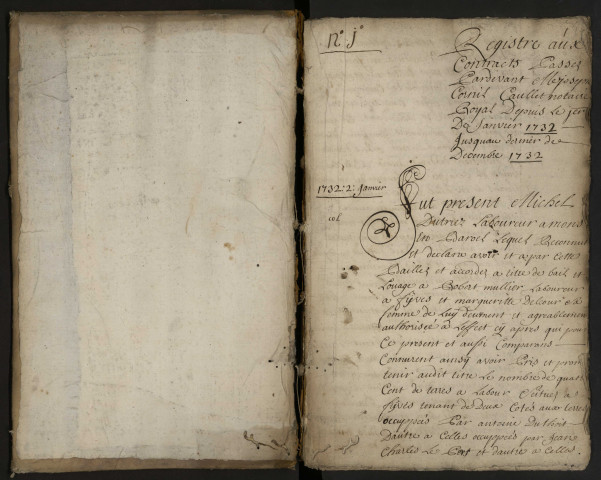 n.° j.°
Registre aux
Contracts Passez
Pardevant Me Joseph
Caullet notaire
Royal Depuis Le jer
De Janvier 1732
Jusquau dernier de
Decembre 1732
1732: 2: Janvier
col
fut present Michel
Dutriez Laboureur a mons
en Baroel Lequel Reconnut
et declara avoir et a par Cette
Baillez et accordez a titre de bail et
Louage a mullier Laboureur
a flyves et margueritte Delcour
femme de Luy deuement et agreablement
authorisée a Leffect cy apres qui pour
Ce present et aussi Comparans
Connurent aussy avoir Pris et promis
tenir audit titre Le nombre de quatre
Cent de terres a Labour scituez a
flyves tenant de Deux Cotés aux terres
occuppés Par antoine
Dautre a Celles occuppés par Jean
Charles Le et dautre a Celles